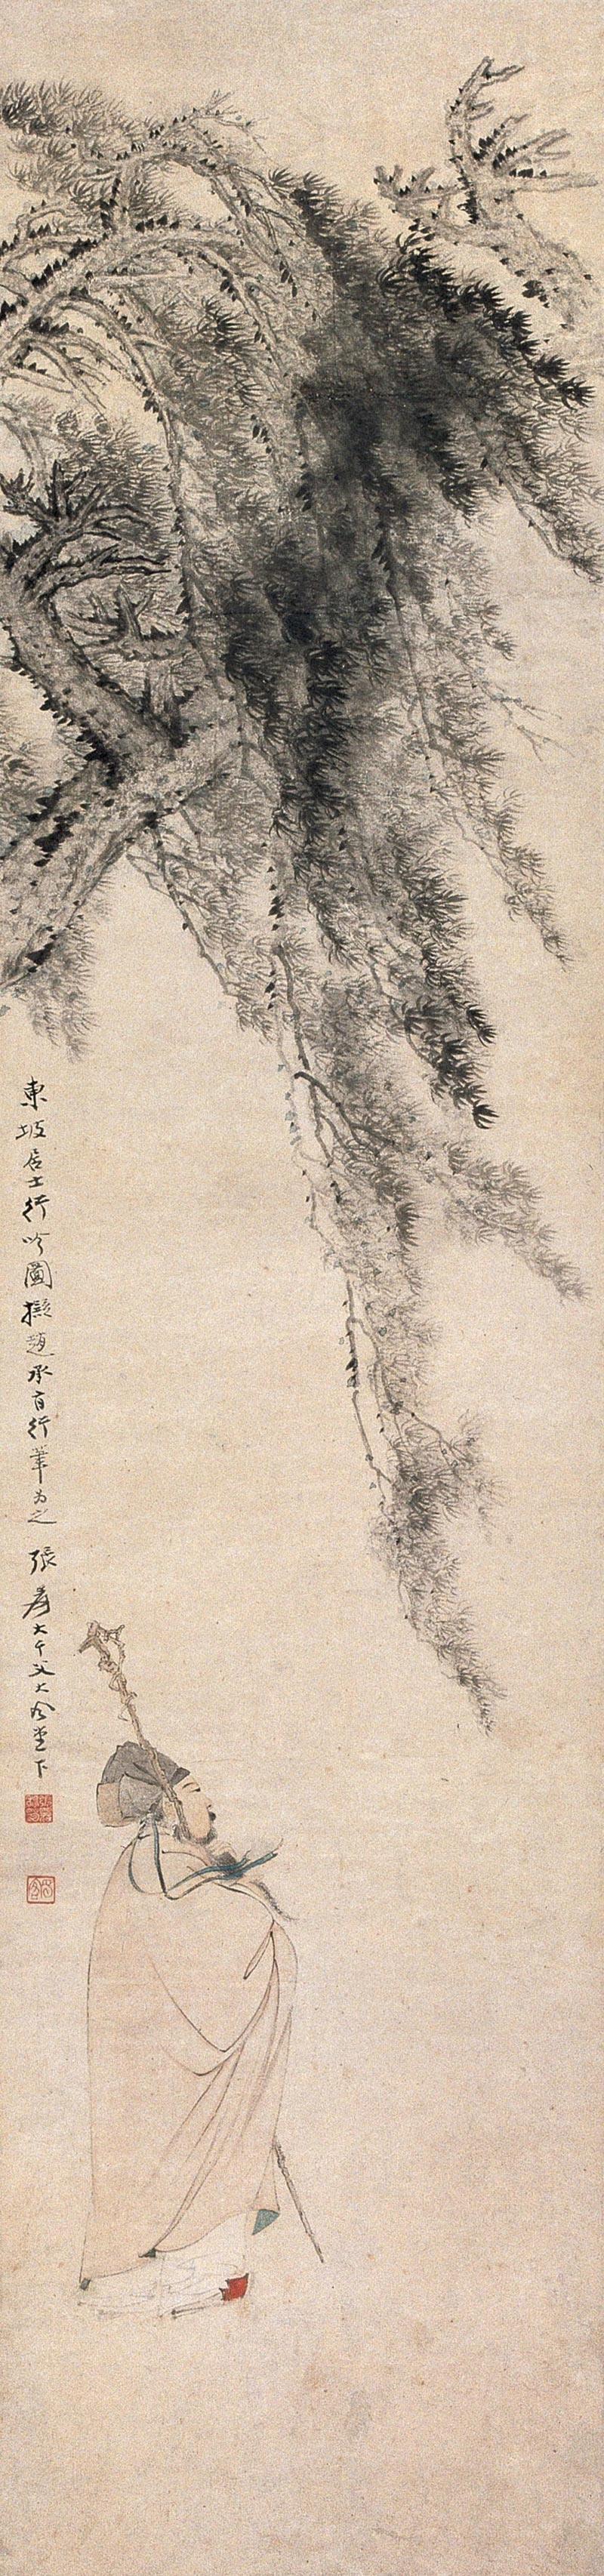 東坡居士行吟圖擬趙承旨行筆為之張爰大千父大風堂下